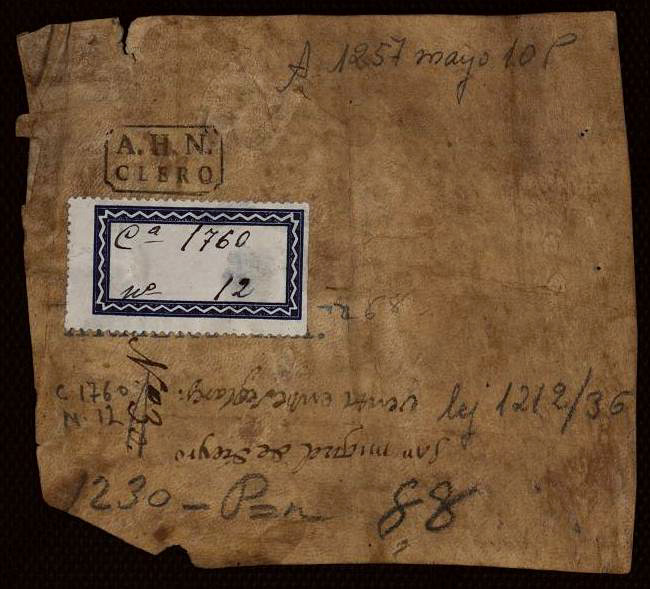 A 1257 mayo 10 P
A.H.N.
CLERO
Cª 1760
nº 12
C 1760
N. 12
leg 1212/36
san miguel de
1230 - P=n
88